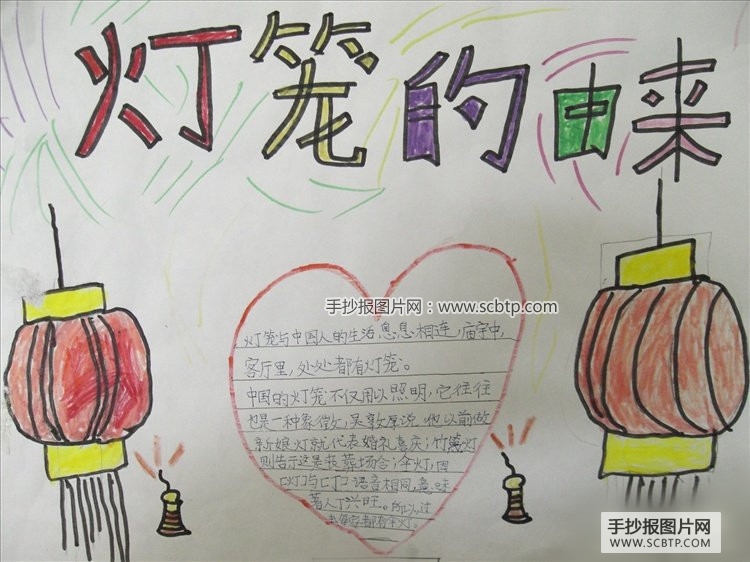 灯笼的由来
手抄报图片网：www.scbtp.com
灯笼与中国人的生活息息相连，庙宇中，
客厅里，处处都有灯笼。
中国的灯笼不仅用以照明，它往往
也是一种象征，吴敦厚说，他以前做
新娘灯就代表婚礼喜庆；竹篾灯
则告示这是丧葬场合；伞灯，因
"灯"与"丁"语音相同，意味
着人丁兴旺。所以过
去都有伞灯。
手抄报图片网
WWW.SCBTP.COM